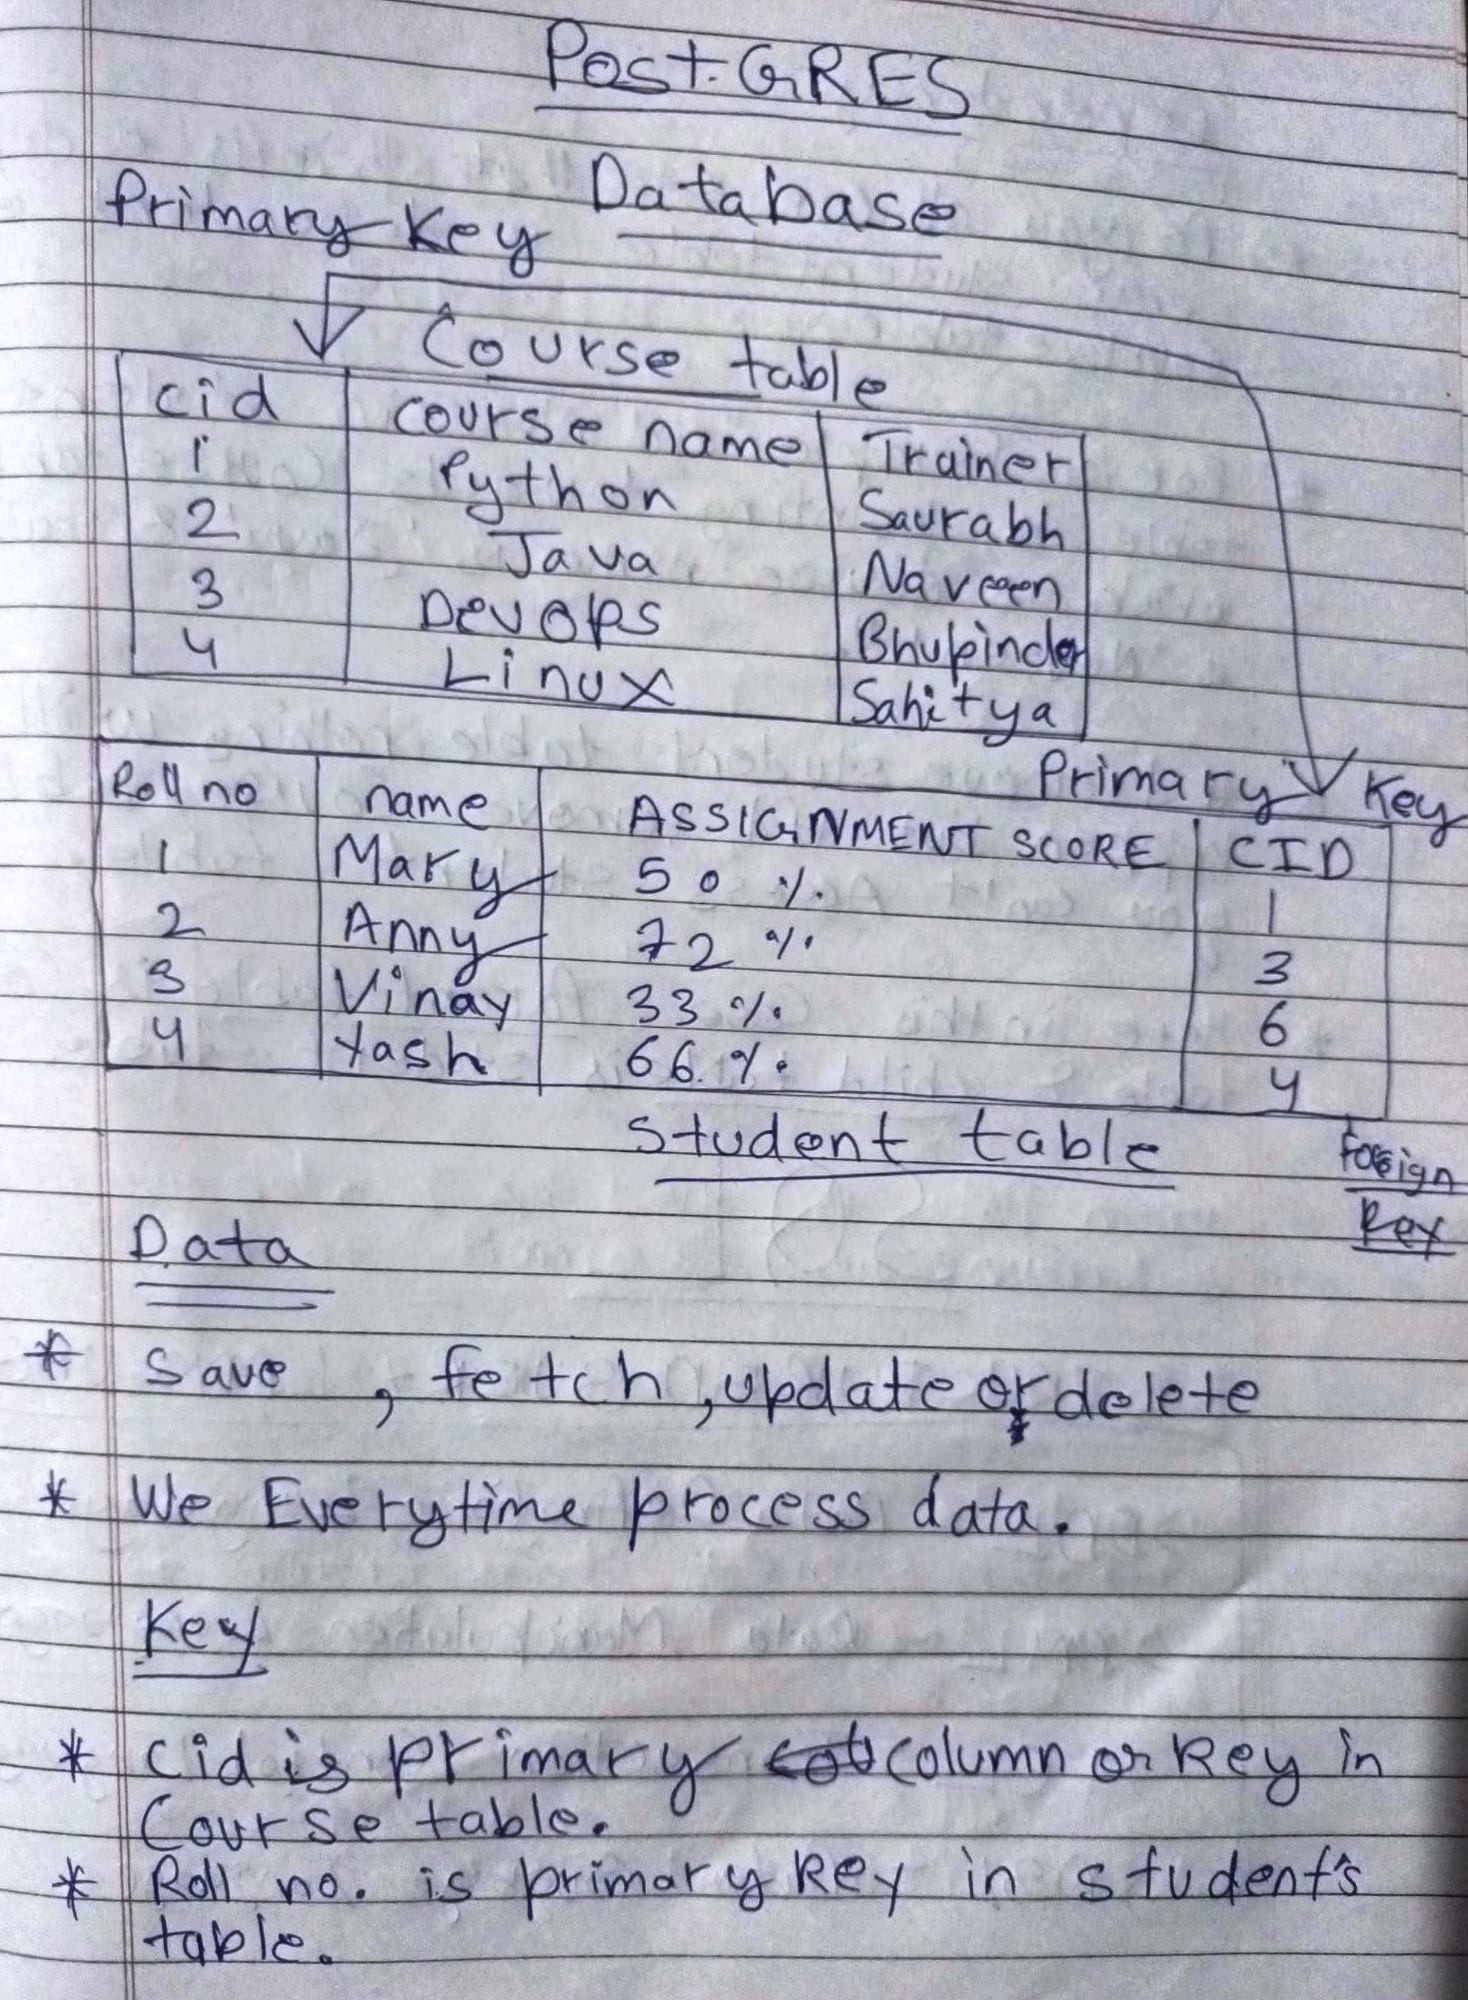 PostGRES
Database
Primary Key
Course table
cid | course name | Trainer
1 | Python | Saurabh
2 | Java | Naveen
3 | DevOps | Bhupinder
4 | Linux | Sahitya
Primary Key
Roll no | name | ASSIGNMENT SCORE | CID
1 | Mary | 50 % | 1
2 | Anny | 72 % | 3
3 | Vinay | 33 % | 6
4 | Yash | 66 % | 4
Student table
Foreign
Key
Data
* Save , fetch , update or delete
* We Everytime process data.
Key
* Cid is primary column or key in
Course table.
* Roll no. is primary key in student's
table.